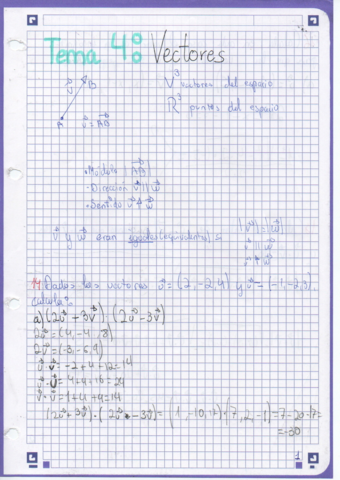 Tema 4: Vectores
B
v⃗
A v⃗ = AB⃗
V³ vectores del espacio
R³ puntos del espacio
• Módulo |AB⃗|
- Dirección v⃗ || w⃗
- Sentido v⃗ ⇈ w⃗
v⃗ y w⃗ eran iguales (equivalentes) si
|v⃗| = |w⃗|
v⃗ || w⃗
v⃗ ⇈ w⃗
Dados los vectores = (2, -2, 4) y = (-1, -2, 3),
calcula:
a) (2 + 3) · (2 - 3)
= (4, -4, 8)
= (-3, -6, 9)
= -2 + 4 + 12 = 14
= 4 + 4 + 16 = 24
= 1 + 4 + 9 = 14
(1, -10, 17) · (7, 2, -1) = 7 - 20 - 17 =
= -30